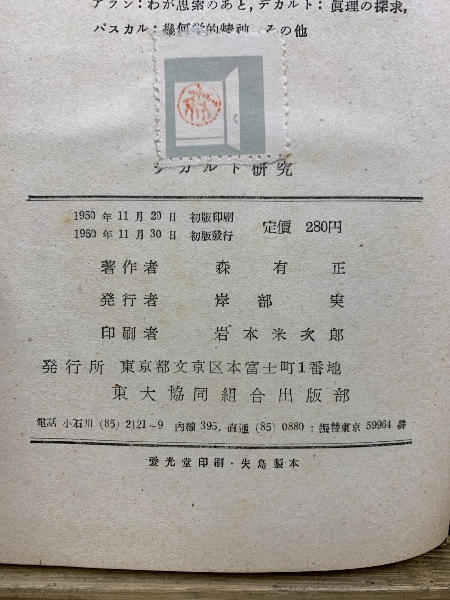 アラン：わが思索のあと，デカルト：眞理の探求，
パスカル：幾何学的精神，その他
デカルト研究
1950 年 11 月 20 日 初版印刷
1950 年 11 月 30 日 初版發行
定價 280円
著作者 森有正
発行者 岸部実
印刷者 岩本米次郎
発行所 東京都文京区本富士町1番地
東大協同組合出版部
電話 小石川 (85) 2121~9 內線 395, 直通 (85) 0880 : 振替東京 59964 番
愛光堂印刷・矢島製本